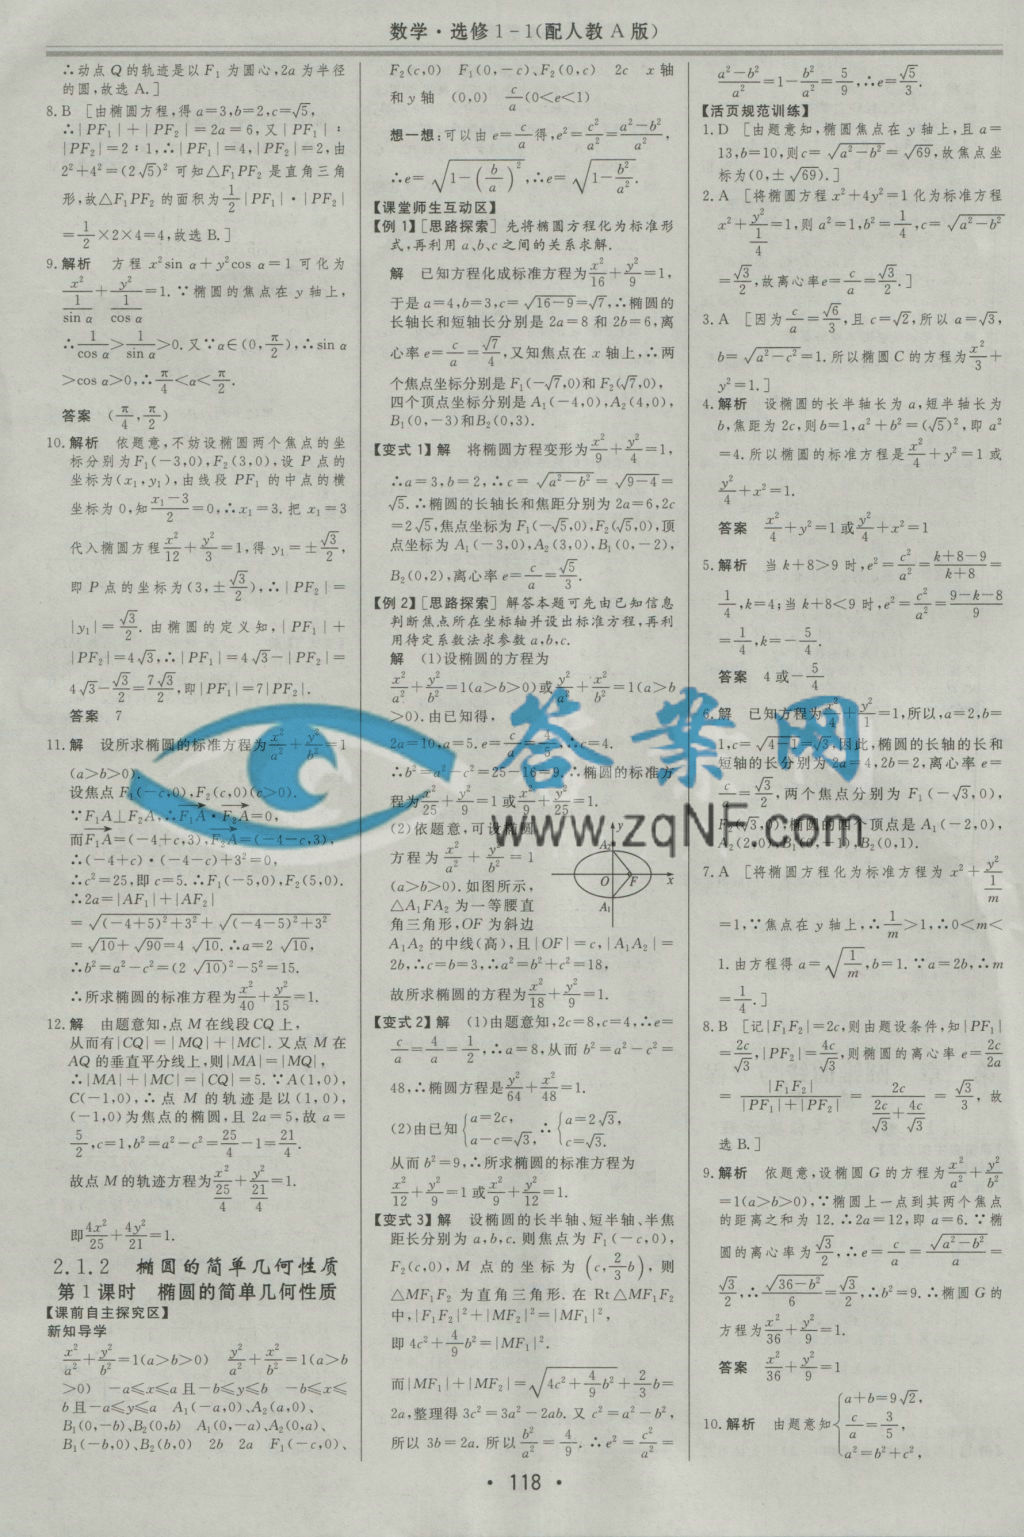 数学·选修1-1(配人教A版)
∴动点Q的轨迹是以F₁为圆心,2a为半径
的圆,故选A.]
8.B [由椭圆方程,得a=3,b=2,c=√5,
∴|PF₁|+|PF₂|=2a=6,又|PF₁|:
|PF₂|=2:1,∴|PF₁|=4,|PF₂|=2,由
2²+4²=(2√5)²可知△F₁PF₂是直角三角
形,故△F₁PF₂的面积为1/2|PF₁|·|PF₂|
=1/2×2×4=4,故选B.]
9.解析 方程x²sin α+y²cos α=1可化为
x²/(1/sin α)+y²/(1/cos α)=1.∵椭圆的焦点在y轴上,
∴1/cos α>1/sin α>0.又∵α∈(0,π/2),∴sin α
>cos α>0,∴π/4<α<π/2.
答案 (π/4,π/2)
10.解析 依题意,不妨设椭圆两个焦点的坐
标分别为F₁(-3,0),F₂(3,0),设P点的
坐标为(x₁,y₁),由线段PF₁的中点的横
坐标为0,知(x₁-3)/2=0,∴x₁=3.把x₁=3
代入椭圆方程x²/12+y²/3=1,得y₁=±√3/2,
即P点的坐标为(3,±√3/2),∴|PF₂|=
|y₁|=√3/2.由椭圆的定义知,|PF₁|+
|PF₂|=4√3,∴|PF₁|=4√3-|PF₂|=
4√3-√3/2=7√3/2,即|PF₁|=7|PF₂|.
答案 7
11.解 设所求椭圆的标准方程为x²/a²+y²/b²=1
(a>b>0).
设焦点F₁(-c,0),F₂(c,0)(c>0).
∵F₁A⊥F₂A,∴F₁A·F₂A=0,
而F₁A=(-4+c,3),F₂A=(-4-c,3),
∴(-4+c)·(-4-c)+3²=0,
∴c²=25,即c=5.∴F₁(-5,0),F₂(5,0).
∴2a=|AF₁|+|AF₂|
=√((-4+5)²+3²)+√((-4-5)²+3²)
=√10+√90=4√10.∴a=2√10,
∴b²=a²-c²=(2√10)²-5²=15.
∴所求椭圆的标准方程为x²/40+y²/15=1.
12.解 由题意知,点M在线段CQ上,
从而有|CQ|=|MQ|+|MC|.又点M在
AQ的垂直平分线上,则|MA|=|MQ|,
∴|MA|+|MC|=|CQ|=5.∵A(1,0),
C(-1,0),∴点M的轨迹是以(1,0),
(-1,0)为焦点的椭圆,且2a=5,故a=
5/2,c=1,b²=a²-c²=25/4-1=21/4.
故点M的轨迹方程为x²/(25/4)+y²/(21/4)=1.
即4x²/25+4y²/21=1.
2.1.2 椭圆的简单几何性质
第1课时 椭圆的简单几何性质
【课前自主探究区】
新知导学
x²/a²+y²/b²=1(a>b>0) y²/a²+x²/b²=1(a>b
>0) -a≤x≤a且-b≤y≤b -b≤x≤
b且-a≤y≤a A₁(-a,0)、A₂(a,0)、
B₁(0,-b)、B₂(0,b) A₁(0,-a)、A₂(0,a)、
B₁(-b,0)、B₂(b,0) 2b 2a F₁(-c,0)、
F₂(c,0) F₁(0,-c)、F₂(0,c) 2c x轴
和y轴 (0,0) c/a(0<e<1)
想一想:可以由e=c/a得,e²=c²/a²=(a²-b²)/a²,
∴e=√(1-(b/a)²),∴e=√(1-b²/a²).
【课堂师生互动区】
【例1】[思路探索] 先将椭圆方程化为标准形
式,再利用a、b、c之间的关系求解.
解 已知方程化成标准方程为x²/16+y²/9=1,
于是a=4,b=3,c=√(16-9)=√7,∴椭圆的
长轴长和短轴长分别是2a=8和2b=6,离
心率e=c/a=√7/4,又知焦点在x轴上,∴两
个焦点坐标分别是F₁(-√7,0)和F₂(√7,0),
四个顶点坐标分别是A₁(-4,0),A₂(4,0),
B₁(0,-3)和B₂(0,3).
【变式1】解 将椭圆方程变形为x²/9+y²/4=1,
∴a=3,b=2,∴c=√(a²-b²)=√(9-4)=
√5.∴椭圆的长轴长和焦距分别为2a=6,2c
=2√5,焦点坐标为F₁(-√5,0),F₂(√5,0),顶
点坐标为A₁(-3,0),A₂(3,0),B₁(0,-2),
B₂(0,2),离心率e=c/a=√5/3.
【例2】[思路探索] 解答本题可先由已知信息
判断焦点所在坐标轴并设出标准方程,再利
用待定系数法求参数a,b,c.
解 (1)设椭圆的方程为
x²/a²+y²/b²=1(a>b>0)或y²/a²+x²/b²=1(a>b
>0).由已知得,
2a=10,a=5.e=c/a=4/5,∴c=4.
∴b²=a²-c²=25-16=9.∴椭圆的标准方
程为x²/25+y²/9=1或x²/9+y²/25=1.
(2)依题意,可设椭圆
方程为x²/a²+y²/b²=1
(a>b>0).如图所示,
△A₁FA₂为一等腰直
角三角形,OF为斜边
A₁A₂的中线(高),且|OF|=c,|A₁A₂|=
2b,∴c=b=3,∴a²=b²+c²=18,
故所求椭圆的方程为x²/18+y²/9=1.
y
A₂
O
F
x
A₁
【变式2】解 (1)由题意知,2c=8,c=4,∴e=
c/a=4/a=1/2,∴a=8,从而b²=a²-c²=
48,∴椭圆方程是y²/64+x²/48=1.
(2)由已知{a=2c, a-c=√3, ∴{a=2√3, c=√3.
从而b²=9,∴所求椭圆的标准方程为
x²/12+y²/9=1或x²/9+y²/12=1.
【变式3】解 设椭圆的长半轴、短半轴、半焦
距长分别为a,b,c.则焦点为F₁(-c,0),
F₂(c,0),M点的坐标为(c,2/3b),则
△MF₁F₂为直角三角形.在Rt△MF₁F₂
中,|F₁F₂|²+|MF₂|²=|MF₁|²,
即4c²+4/9b²=|MF₁|².
而|MF₁|+|MF₂|=√(4c²+4/9b²)+2/3b=
2a,整理得3c²=3a²-2ab.又c²=a²-b²,
所以3b=2a.所以b²/a²=4/9.∴e²=c²/a²=
(a²-b²)/a²=1-b²/a²=5/9,∴e=√5/3.
【活页规范训练】
1.D [由题意知,椭圆焦点在y轴上,且a=
13,b=10,则c=√(a²-b²)=√69,故焦点坐
标为(0,±√69).]
2.A [将椭圆方程x²+4y²=1化为标准方程
x²+y²/(1/4)=1,则a²=1,b²=1/4,c=√(a²-b²)
=√3/2,故离心率e=c/a=√3/2.]
3.A [因为c/a=√6/3,且c=√2,所以a=√3,
b=√(a²-c²)=1.所以椭圆C的方程为x²/3+
y²=1.]
4.解析 设椭圆的长半轴长为a,短半轴长为
b,焦距为2c,则b=1,a²+b²=(√5)²,即a²
=4.所以椭圆的标准方程是x²/4+y²=1或
y²/4+x²=1.
答案 x²/4+y²=1或y²/4+x²=1
5.解析 当k+8>9时,e²=c²/a²=(k+8-9)/(k+8)=
1/4,k=4;当k+8<9时,e²=c²/a²=(9-k-8)/9
=1/4,k=-5/4.
答案 4或-5/4
6.解 已知方程为x²/4+y²/1=1,所以,a=2,b=
1,c=√(4-1)=√3,因此,椭圆的长轴的长和
短轴的长分别为2a=4,2b=2,离心率e=
c/a=√3/2,两个焦点分别为F₁(-√3,0),
F₂(√3,0),椭圆的四个顶点是A₁(-2,0),
A₂(2,0),B₁(0,-1),B₂(0,1).
7.A [将椭圆方程化为标准方程为x²+y²/(1/m)
=1,∵焦点在y轴上,∴1/m>1,∴0<m<
1.由方程得a=√(1/m),b=1.∵a=2b,∴m
=1/4.]
8.B [记|F₁F₂|=2c,则由题设条件,知|PF₁|
=2c/√3,|PF₂|=4c/√3,则椭圆的离心率e=2c/2a
=|F₁F₂|/(|PF₁|+|PF₂|)=2c/(2c/√3+4c/√3)=√3/3,故
选B.]
9.解析 依题意,设椭圆G的方程为x²/a²+y²/b²
=1(a>b>0),∵椭圆上一点到其两个焦点
的距离之和为12.∴2a=12,即a=6.∵椭
圆的离心率为√3/2,∴e=c/a=√(a²-b²)/a=
√3/2,∴√(36-b²)/6=√3/2,∴b²=9.∴椭圆G的
方程为x²/36+y²/9=1.
答案 x²/36+y²/9=1
10.解析 由题意知{a+b=9√2, c/a=3/5, a²=b²+c²,
答案网
www.zqNF.com
·118·